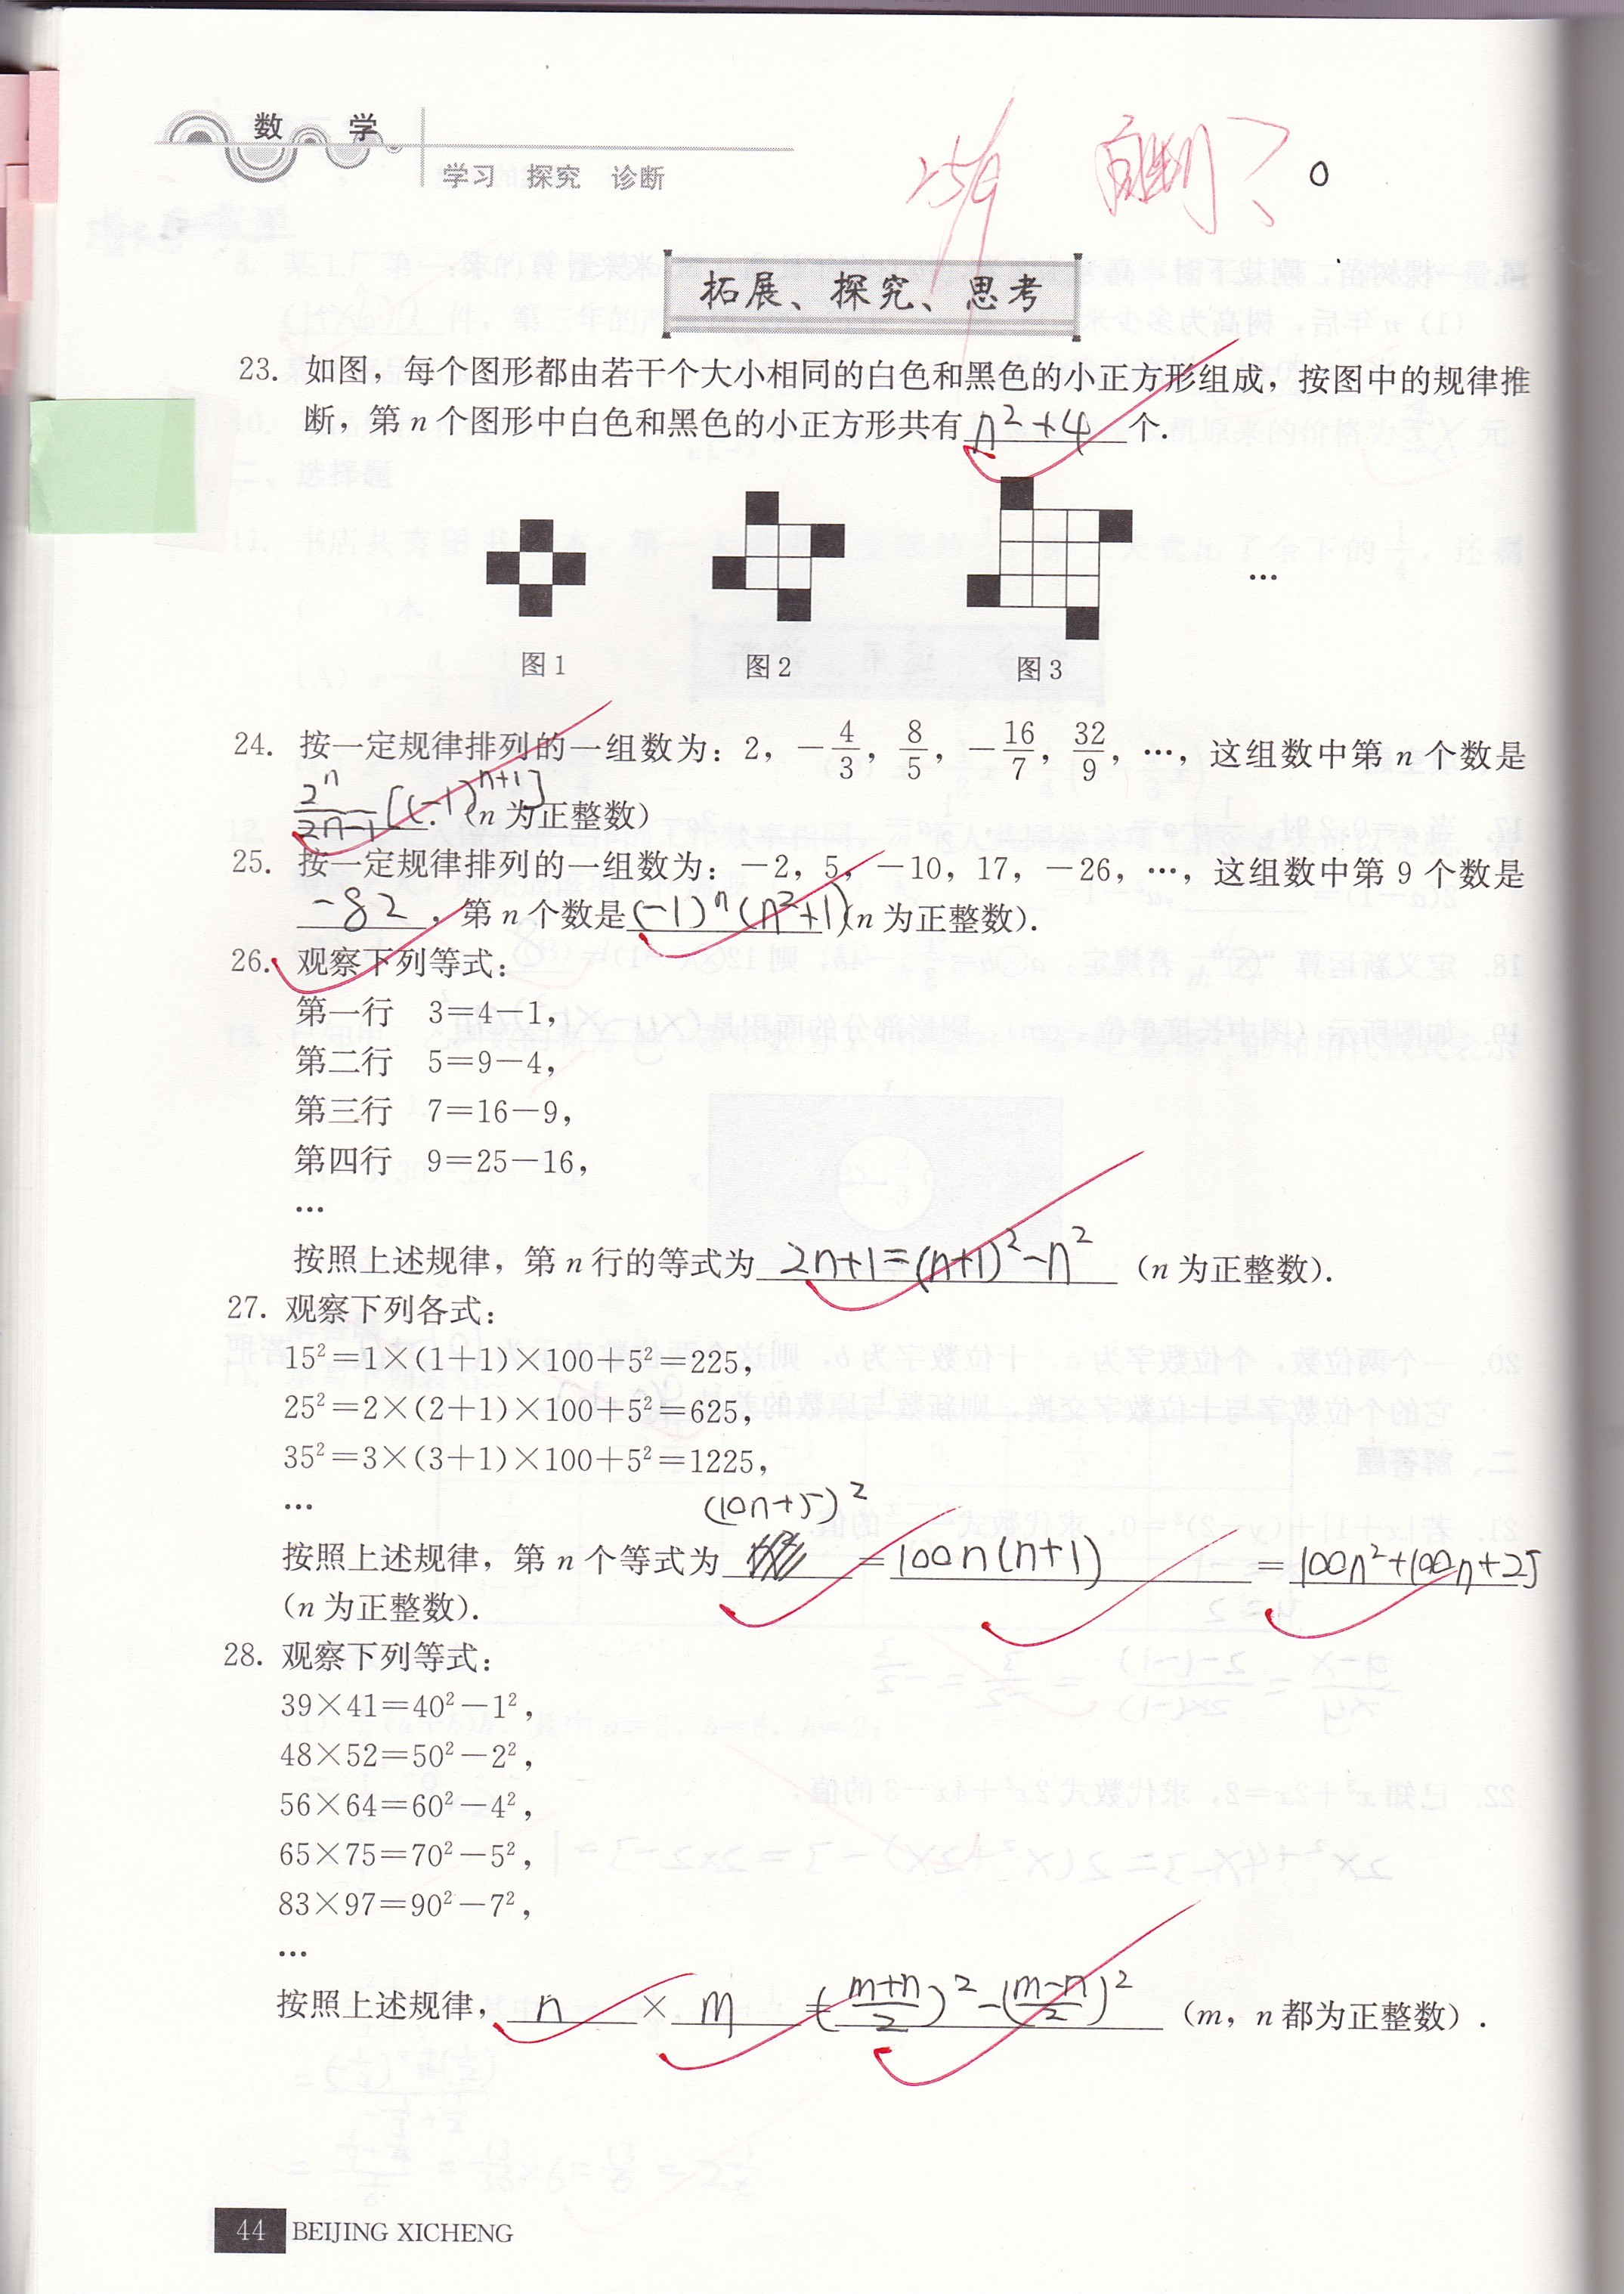 数 学
学习 探究 诊断
拓展、探究、思考
23. 如图，每个图形都由若干个大小相同的白色和黑色的小正方形组成，按图中的规律推
断，第 n 个图形中白色和黑色的小正方形共有 n²+4 个.
…
图1 图2 图3
24. 按一定规律排列的一组数为：2，-4/3，8/5，-16/7，32/9，…，这组数中第 n 个数是
2ⁿ/(2n-1)[(-1)ⁿ⁺¹].(n 为正整数)
25. 按一定规律排列的一组数为：-2，5，-10，17，-26，…，这组数中第 9 个数是
-82，第 n 个数是(-1)ⁿ(n²+1)(n 为正整数).
26. 观察下列等式：
第一行 3=4-1，
第二行 5=9-4，
第三行 7=16-9，
第四行 9=25-16，
…
按照上述规律，第 n 行的等式为 2n+1=(n+1)²-n² (n 为正整数).
27. 观察下列各式：
15²=1×(1+1)×100+5²=225，
25²=2×(2+1)×100+5²=625，
35²=3×(3+1)×100+5²=1225，
…
(10n+5)²
按照上述规律，第 n 个等式为 =100n(n+1) =100n²+100n+25
(n 为正整数).
28. 观察下列等式：
39×41=40²-1²，
48×52=50²-2²，
56×64=60²-4²，
65×75=70²-5²，
83×97=90²-7²，
…
按照上述规律， n × m =((m+n)/2)²-((m-n)/2)² (m，n 都为正整数).
44 BEIJING XICHENG